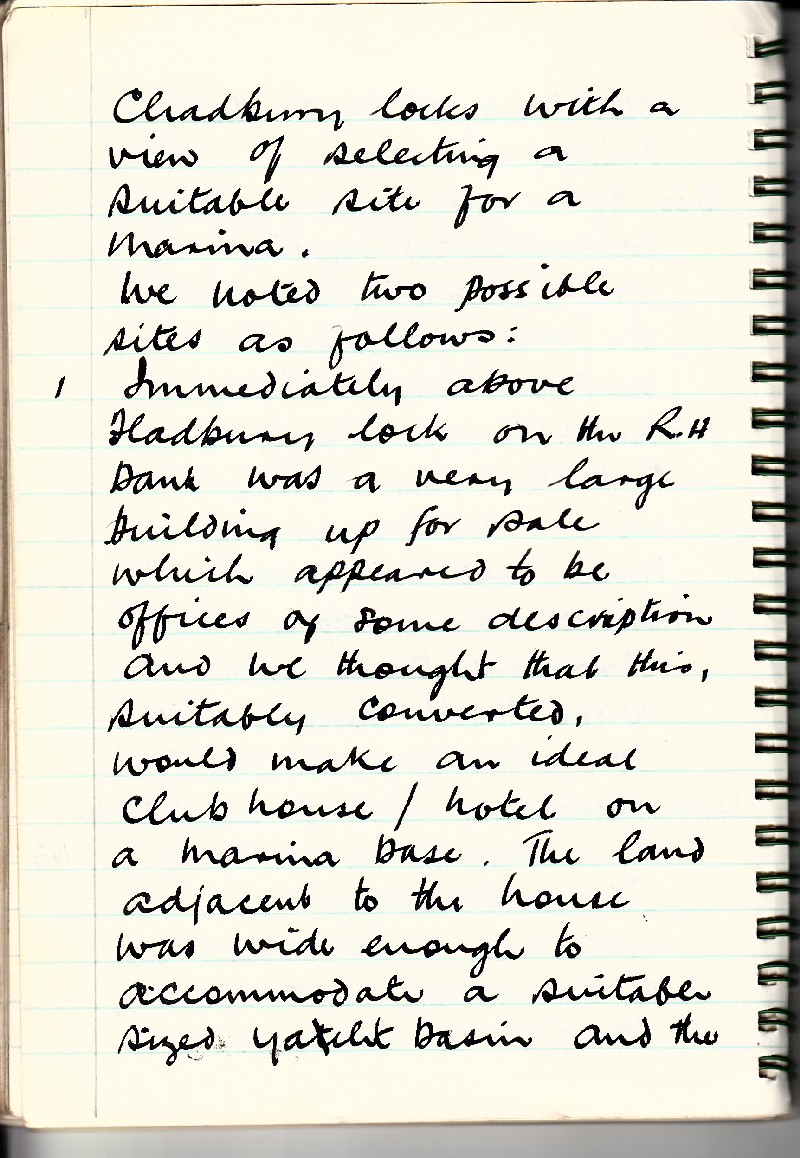 Chadbury locks with a
view of selecting a
suitable site for a
marina.
We noted two possible
sites as follows:
1 Immediately above
Hadbury lock on the R.H
bank was a very large
building up for sale
which appeared to be
offices of some description
and we thought that this,
suitably converted,
would make an ideal
Club house / hotel on
a marina base. The land
adjacent to the house
was wide enough to
accommodate a suitable
sized yatcht basin and the